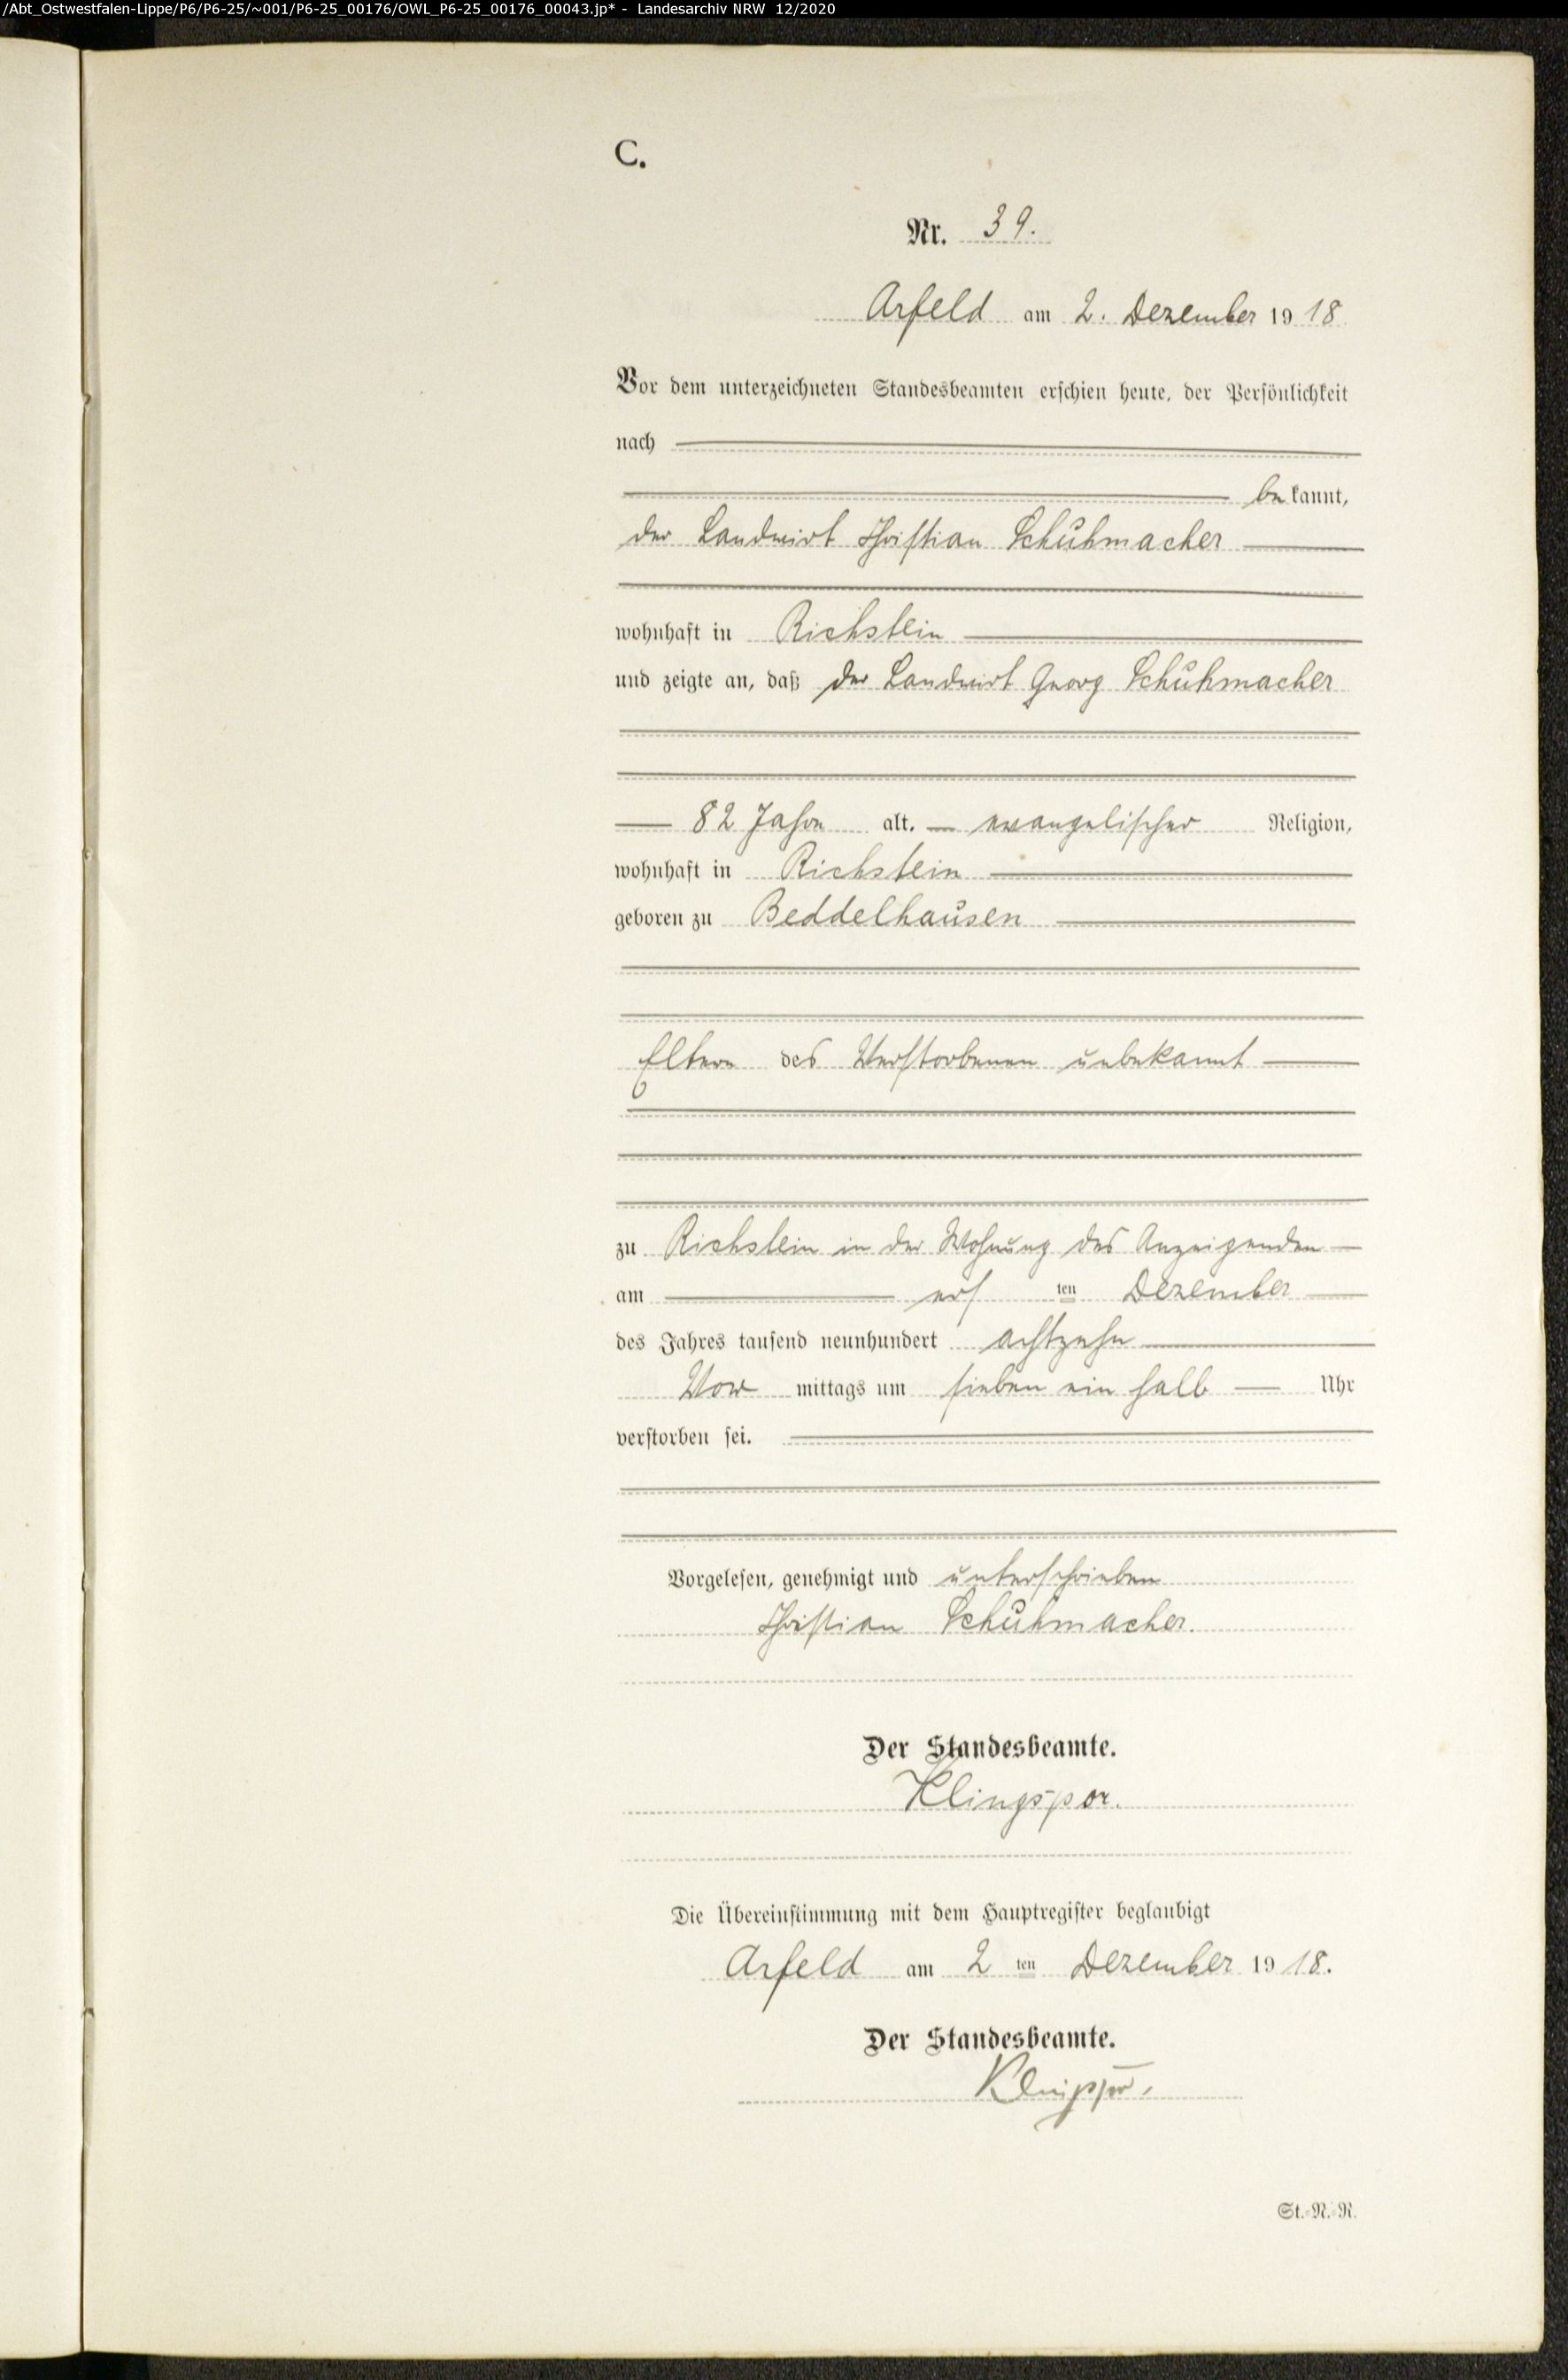 /Abt_Ostwestfalen-Lippe/P6/P6-25/~001/P6-25_00176/OWL_P6-25_00176_00043.jp* - Landesarchiv NRW 12/2020
C.
Nr. 39.
Arfeld am 2. Dezember 1918
Vor dem unterzeichneten Standesbeamten erschien heute, der Persönlichkeit
nach
be kannt,
der Landwirt Christian Schuhmacher
wohnhaft in Richstein
und zeigte an, daß der Landwirt Georg Schuhmacher
82 Jahre alt. evangelischer Religion,
wohnhaft in Richstein
geboren zu Beddelhausen
Eltern des Verstorbenen unbekannt
zu Richstein in der Wohnung des Anzeigenden
am ers ten Dezember
des Jahres tausend neunhundert achtzehn
Vor mittags um sieben ein halb Uhr
verstorben sei.
Vorgelesen, genehmigt und unterschrieben
Christian Schuhmacher.
Der Standesbeamte.
Klingspor.
Die Übereinstimmung mit dem Hauptregister beglaubigt
Arfeld am 2 ten Dezember 1918.
Der Standesbeamte.
Klingspor.
St.-N.-R.